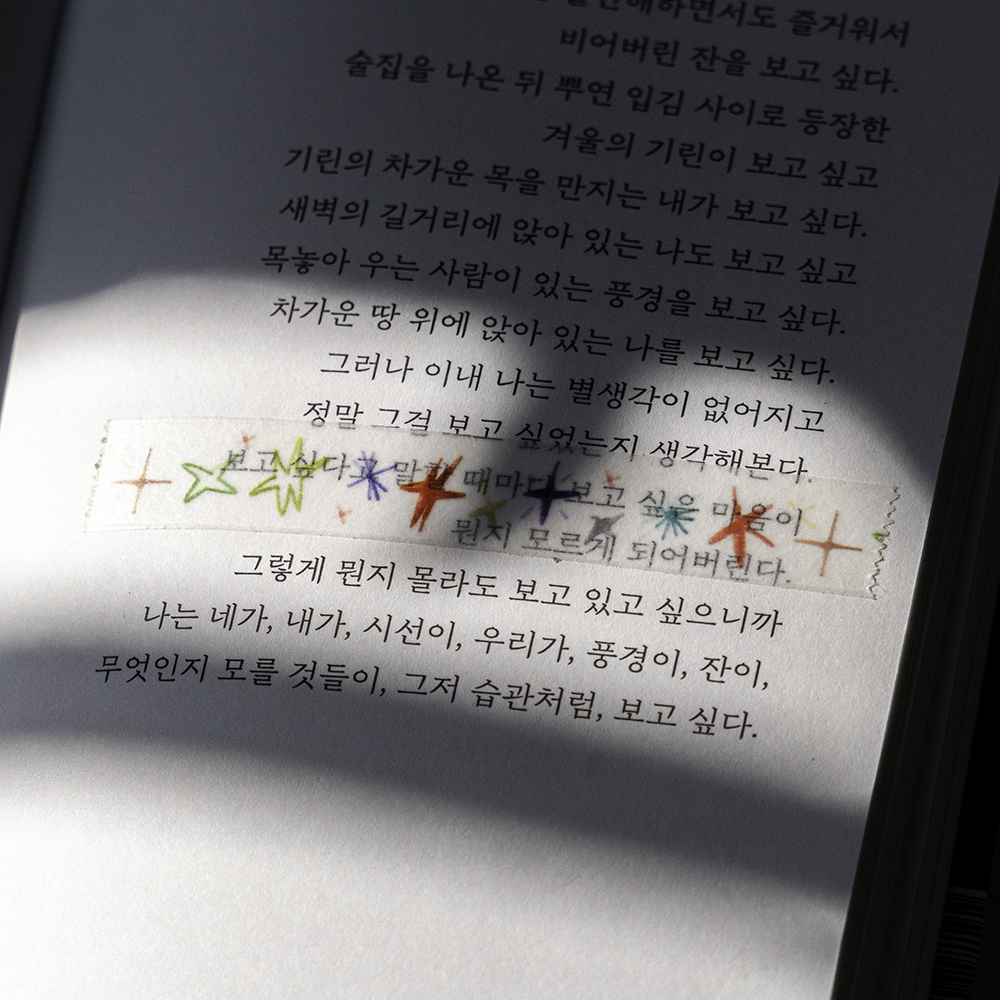 즐거워서
비어버린 잔을 보고 싶다.
술집을 나온 뒤 뿌연 입김 사이로 등장한
겨울의 기린이 보고 싶고
기린의 차가운 목을 만지는 내가 보고 싶다.
새벽의 길거리에 앉아 있는 나도 보고 싶고
목놓아 우는 사람이 있는 풍경을 보고 싶다.
차가운 땅 위에 앉아 있는 나를 보고 싶다.
그러나 이내 나는 별생각이 없어지고
정말 그걸 보고 싶었는지 생각해본다.
보고 싶다고 말할 때마다 보고 싶은 마음이
뭔지 모르게 되어버린다.
그렇게 뭔지 몰라도 보고 있고 싶으니까
나는 네가, 내가, 시선이, 우리가, 풍경이, 잔이,
무엇인지 모를 것들이, 그저 습관처럼, 보고 싶다.